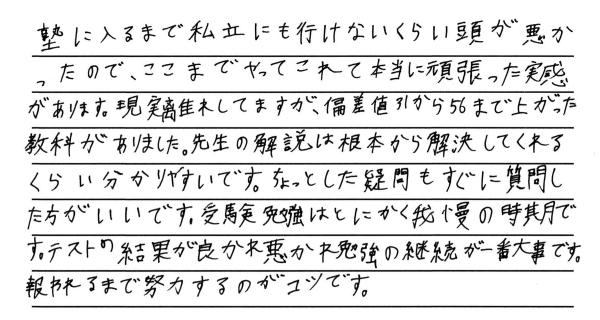 塾に入るまで私立にも行けないくらい頭が悪か
ったので、ここまでやってこれて本当に頑張った実感
があります。現実離れしてますが、偏差値31から56まで上がった
教科がありました。先生の解説は根本から解決してくれる
くらい分かりやすいです。ちょっとした疑問もすぐに質問し
た方がいいです。受験勉強はとにかく我慢の時期で
す。テストの結果が良かれ悪かれ勉強の継続が一番大事です。
報われるまで努力するのがコツです。